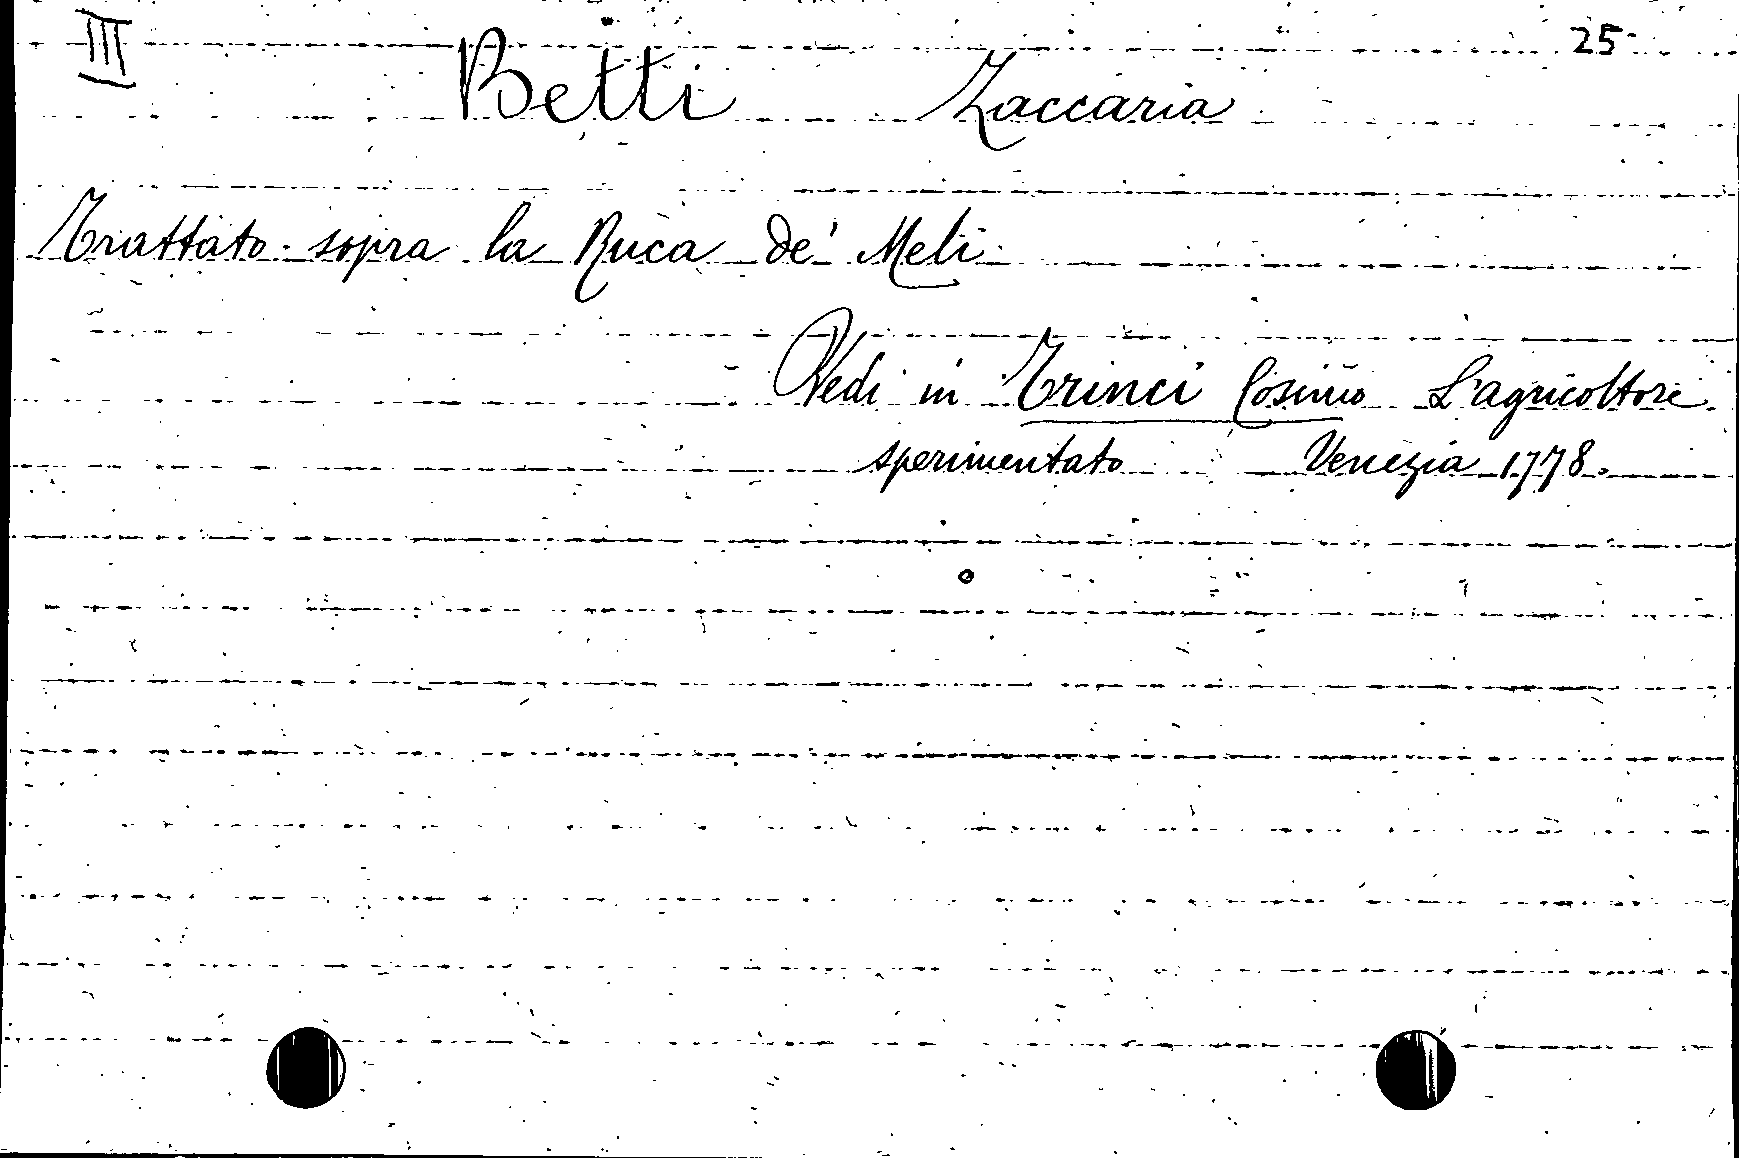 III 25
Betti Zaccaria
Trattato sopra la Ruca de' Meli
Vedi in Trinci Cosimo L'agricoltore
sperimentato Venezia 1778.